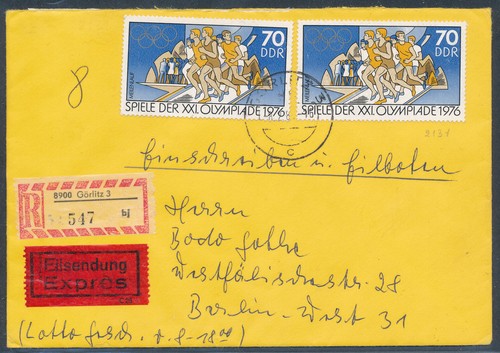 70
DDR
MEERLAUF
SPIELE DER XXI. OLYMPIADE 1976
70
DDR
SPIELE DER XXI. OLYMPIADE 1976
8
2131
Einschreiben u. Eilboten
R
8900 Görlitz 3
547 bj
Eilsendung
Exprès
Herrn
Bodo Gothe
Westfälischestr. 28
Berlin-West 31
(Lotto gesch. v. 8-1800)